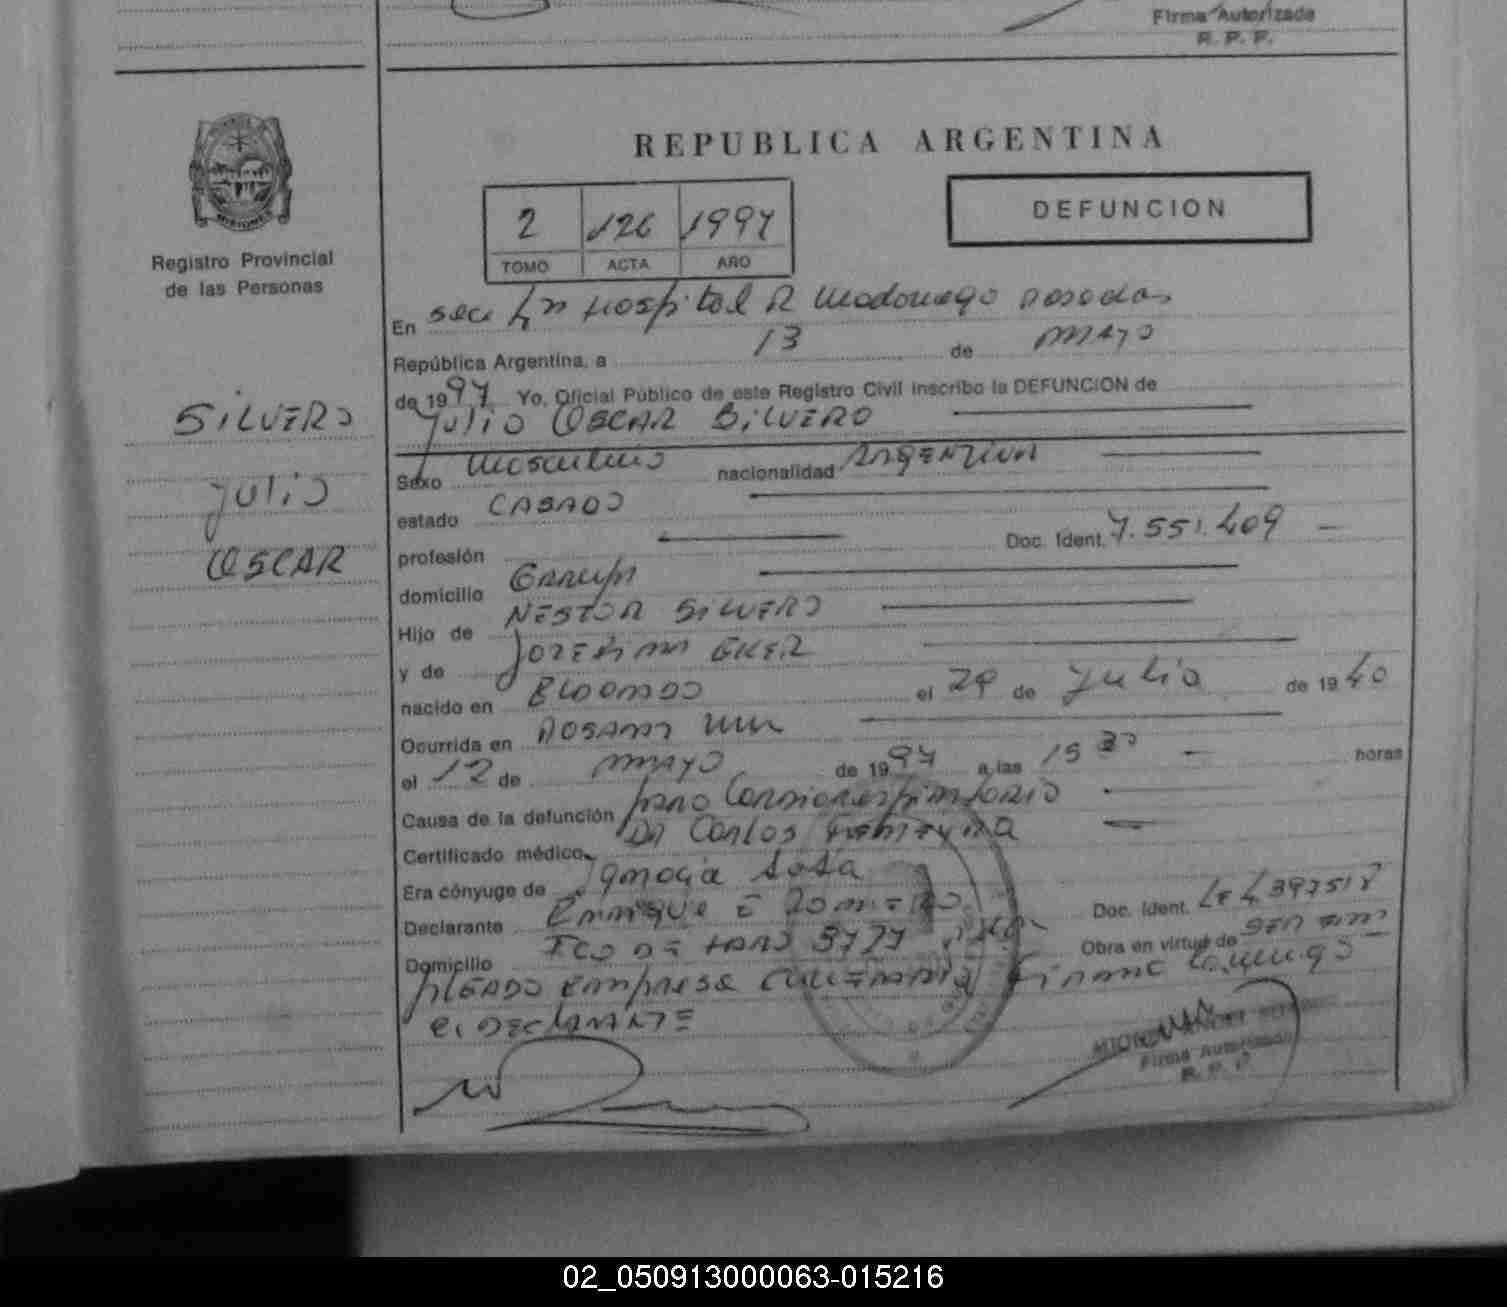 Firma Autorizada
R. P. P.
REPUBLICA ARGENTINA
2 126 1997
TOMO ACTA AÑO
DEFUNCION
Registro Provincial
de las Personas
En Hospital R Posadas
República Argentina, a 13 de MAYO
de 1997 Yo, Oficial Público de este Registro Civil inscribo la DEFUNCION de
Julio OSCAR SiLVERO
SiLVERO
Julio
OSCAR
Sexo Masculino nacionalidad ARgENTINA
estado CASADO
profesión Doc. Ident. 7.551.409
domicilio Garupa
Hijo de NESTOR SiLVERO
y de EKER
nacido en ELDORADO el 29 de Julio de 1940
Ocurrida en
el 12 de MAYO de 1997 a las 15 30 horas
Causa de la defunción paro Cardiorespiratorio
Certificado médico DR Carlos
Era cónyuge de Ignacia Sosa
Declarante Enrique E ROMERO Doc. Ident. LE 4397518
Domicilio Obra en virtud de SER EM
PLEADO Empresa Firma Conmigo
el DECLARANTE
Firma Autorizada
R. P. P.
02_050913000063-015216